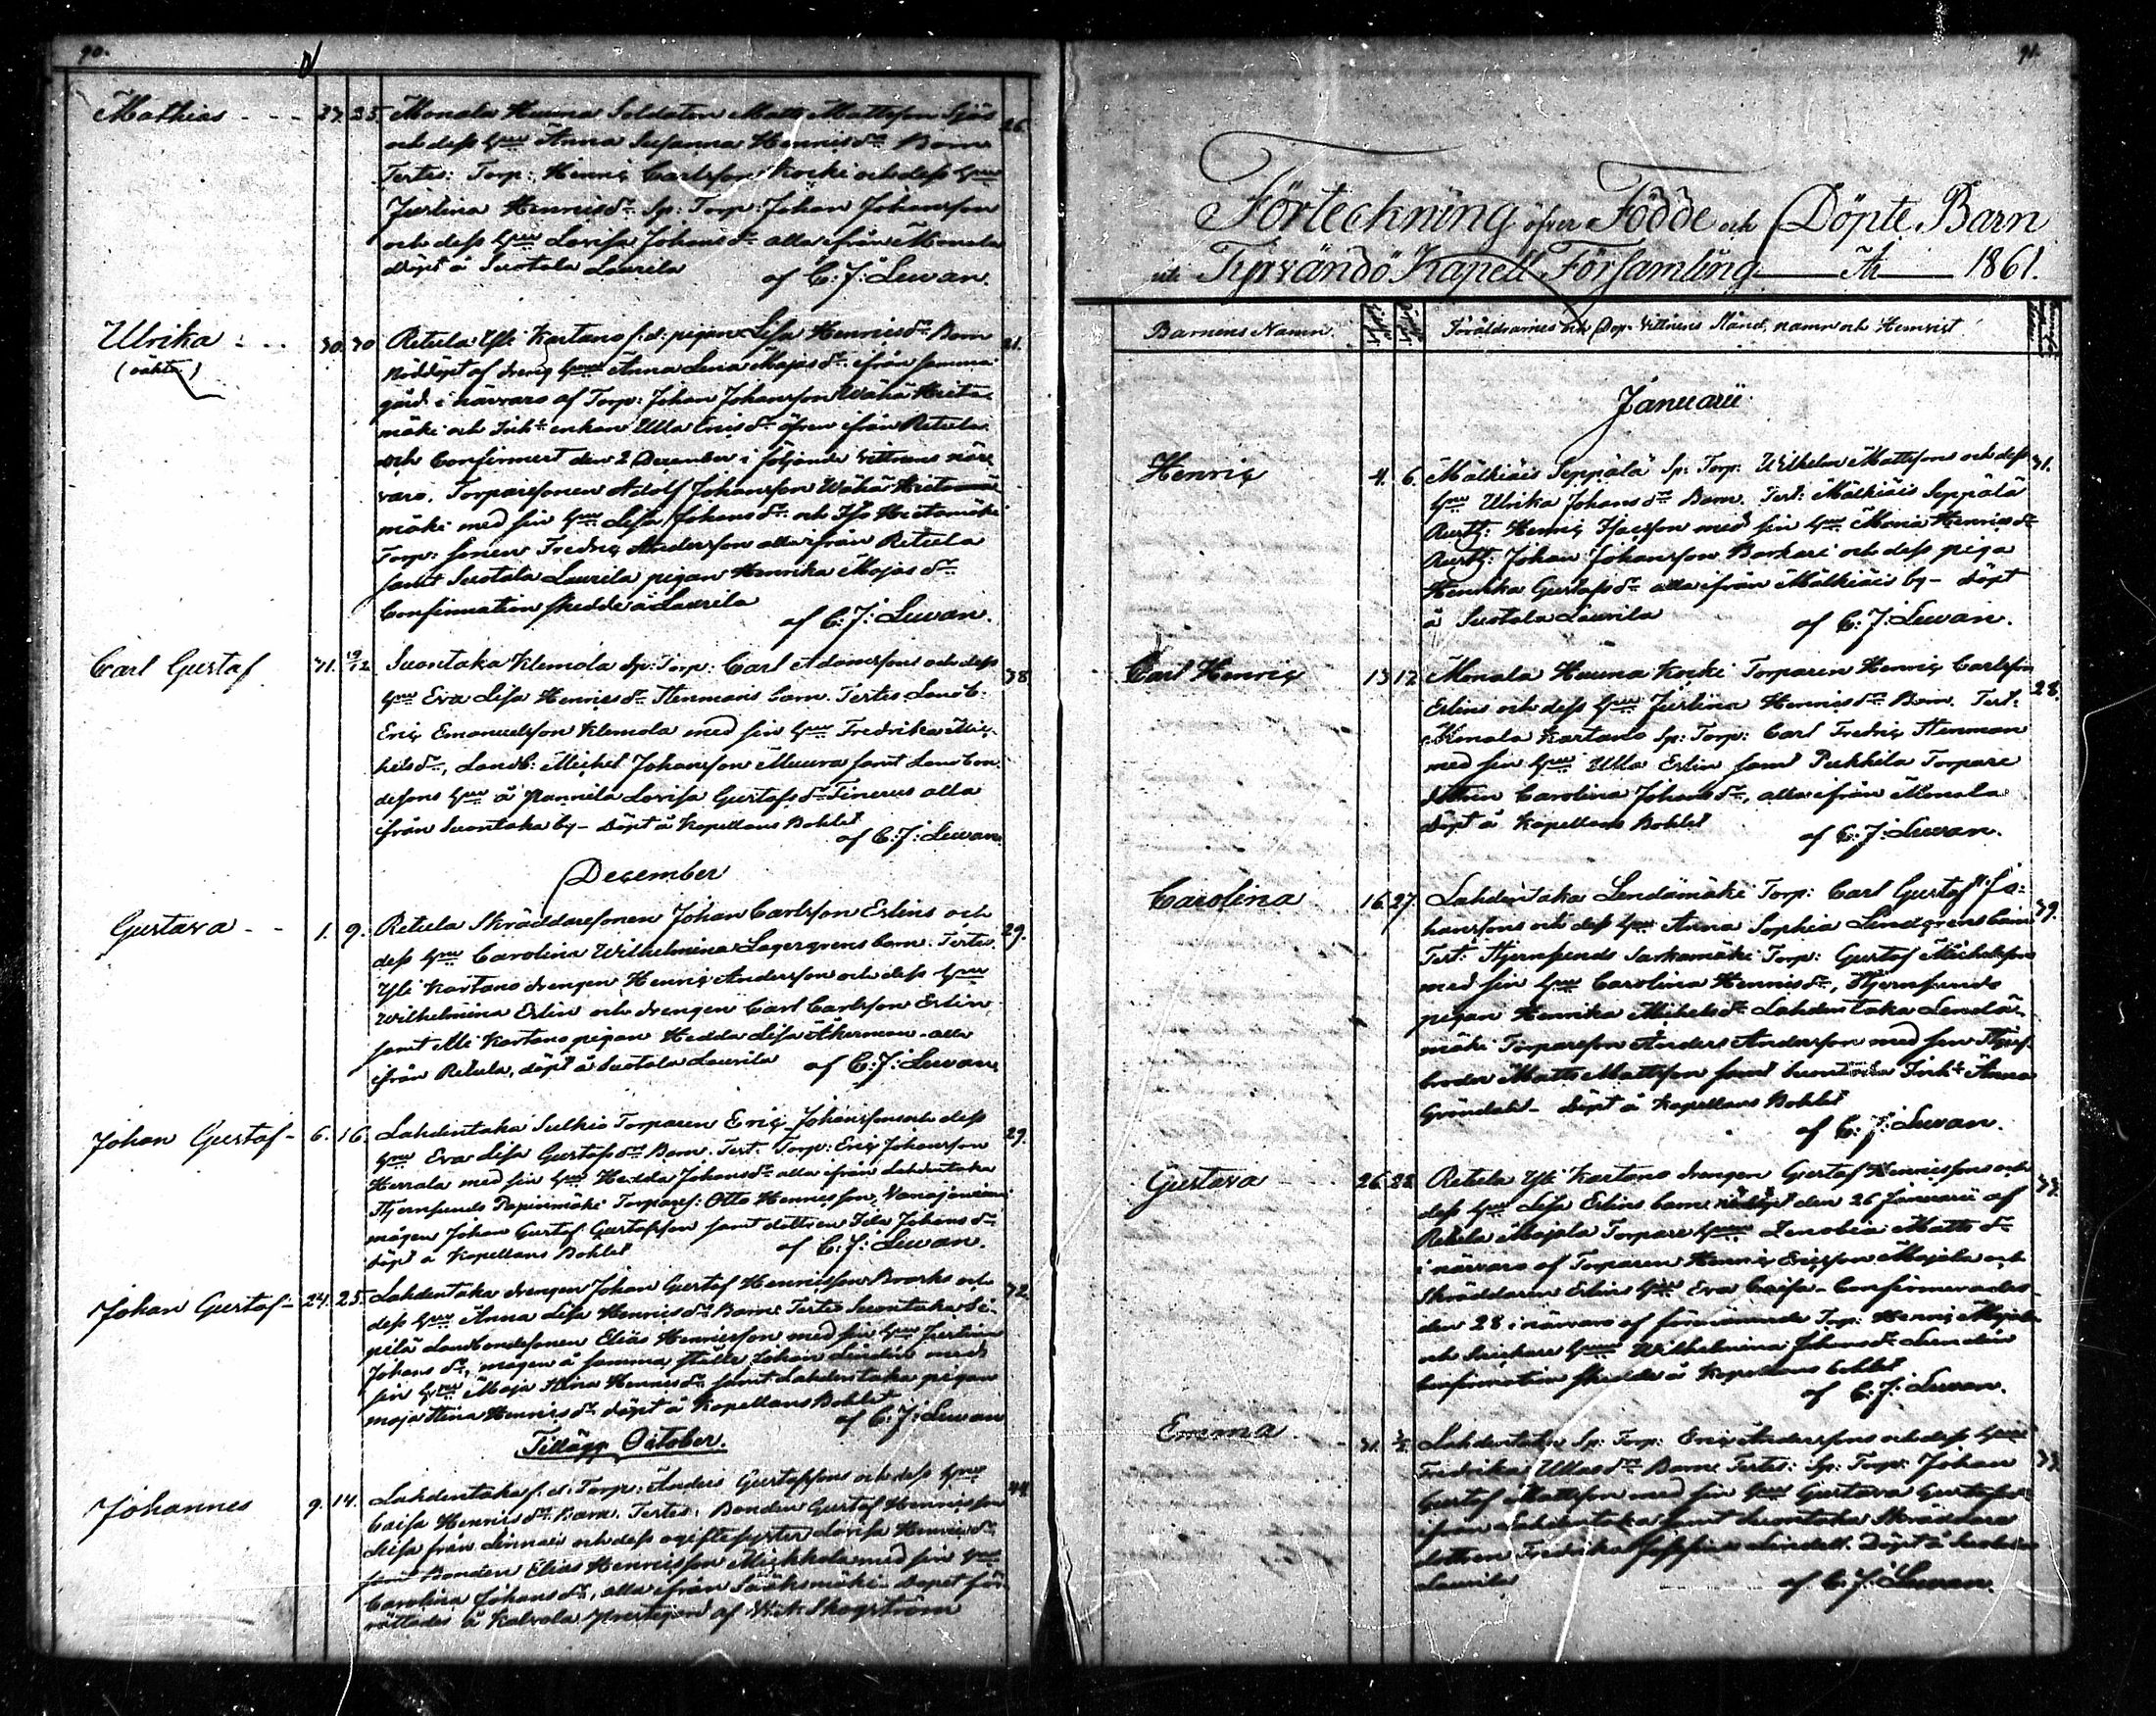 90.
Mathias - - - 27. 25. Monala Huuna Soldaten Matts Mattsson Sjös 26.
och dess hru Anna Susanna Henricsdr Barn
Testes: Torp: Henric Carlsson Kocki och dess hru
Justina Henricsdr Sp: Torp: Johan Johansson
och dess hru Lovisa Johansdr alla ifrån Monala
döpt å Suotala Laurila af C: J: Lewan.
Ulrika - - 30. 30 Retula Yli Kartano f.d. pigan Lisa Henricsdr Barn 21.
(oäkta) Nöddöpt af dreng hru Anna Lena Majasdr ifrån samma
gård i närvaro af Torp: Johan Johansson Wähä Hieta-
mäki och Inh: enkan Ulla Ericsdr äfven ifrån Retula
och Confirmert den 2 December i följande vittnens när-
varo. Torparesonen Adolf Johansson Wähä Hieta
mäki med sin hru Lisa Johansdr och Iso Hietamäki
Torp: sonen Fredric Andersson alla ifrån Retula
samt Suotala Laurila pigan Henrika Majasdr
Confirmation skedde å Laurila af C: J: Lewan.
Carl Gustaf 31. 19/12 Suontaka Klemola Sp: Torp: Carl Adamssons och dess 38
hru Eva Lisa Henricsdr Stenmans barn. Testes Landb:
Eric Emanuelsson Klemola med sin hru Fredrika Mic-
helsdr, Landb: Michel Johansson Muura samt Landbon-
desons hru å Pannila Lovisa Gustafsdr Tinerus alla
ifrån Suontaka by - döpt å Kapellans Bohlet
af C: J: Lewan.
December
Gustava - - 1. 9. Retula Skräddaresonen Johan Carlsson Erlins och 29.
dess hru Carolina Wilhelmina Lagergrens barn. Testes
Yli Kartano drengen Henric Andersson och dess hru
Wilhelmina Erlin och drengen Carl Carlsson Erlin
samt Ali Kartano pigan Hedda Lisa Åkerman - alla
ifrån Retula, döpt å Suotala Laurila af C: J: Lewan.
Johan Gustaf - 6. 16. Lahdentaka Sulkio Torparen Eric Johanssons och dess 29.
hru Eva Lisa Gustafsdr Barn. Test. Torp: Eric Johansson
Herrala med sin hru Hedda Johansdr alla ifrån Lahdentaka
Hjernsunds Papinmäki Torpares: Otto Henricsson, Vanajaniemi
mågen Johan Gustaf Gustafsson samt dottren Ida Johansdr
döpt å Kapellans Bohlet af C: J: Lewan.
Johan Gustaf - 24. 25. Lahdentaka drengen Johan Gustaf Henricsson Brorks och 32.
dess hru Anna Lisa Henricsdr Barn. Testes Suontaka Sei-
pilä Landbondesonen Elias Henricsson med sin hru Justina
Johansdr, mågen å samma ställe Johan Lindén med
sin hru Maja Stina Henricsdr samt Lahdentaka pigan
Maja Stina Henricsdr döpt å Kapellans Bohlet
af C: J: Lewan
Tillägg October.
Johannes 9. 14. Lahdentaka f.d. Torp: Anders Gustafssons och dess hru 44.
Caisa Henricsdr Barn. Testes: Bonden Gustaf Henricsson
från och dess ogifte syster Lovisa Henricsdr
samt Bonden Elias Henricsson Mickkola med sin hru
Carolina Johansdr, alla ifrån Sääksmäki - Dopet för-
rättades å Kalvola Prestegård af Skogström
91.
Förteckning öfver Födde och Döpte Barn
uti Tyrvändö Kapell Församling År 1861.
Barnens Namn. Föräldrarnes och Dop-Vittnens Stånd, namn och Hemvist
Januarii
Henric 4. 6. Mälkiäis Seppälä Sp: Torp: Wilhelm Mattssons och dess 31.
hru Ulrika Johansdr Barn. Test: Mälkiäis Seppälä
Rusth: Henric Isacsson med sin hru Maria Henricsdr
Rusth: Johan Johansson Barkari och dess piga
Henrika Gustafsdr alla ifrån Mälkiäis by - döpt
å Suotala Laurila af C: J: Lewan.
Carl Henric 13 17. Monala Huuna Kocki Torparen Henric Carlsson 28.
Erlins och dess hru Justina Henricsdr Barn. Test:
Monala Kartano Sp: Torp: Carl Fredric Stenman
med sin hru Ulla Erlin samt Pukkila Torpare
dottren Carolina Johansdr, alla ifrån Monala
döpt å Kapellans Bohlet af C: J: Lewan.
Carolina 16. 27. Lahdentaka Lendämäki Torp: Carl Gustaf Jo- 39.
hanssons och dess hru Anna Sophia Lindgrens barn
Test: Hjernsunds Sarkamäki Torp: Gustaf Michelsson
med sin hru Carolina Henricsdr, Hjernsunds
pigan Henrika Michelsdr Lahdentaka Lendä-
mäki Torpareson Anders Andersson med sin Styf-
broder Matts Mattsson samt Suontaka Inh: Anna
Gröndahl - döpt å Kapellans Bohlet
af C: J: Lewan.
Gustava 26. 28. Retula Yli Kartano drengen Gustaf Henricssons och 37.
dess hru Lisa Erlins barn nöddöpt den 26 Januarii af
Retula Majala Torpare hru Zenobia Mattsdr
i närvaro af Torparen Henric Ericsson Majala och
Skräddaren Erlins hru Eva Caisa - Confirmerades
den 28 i närvaro af förenämnde Torp: Henric Majala
och Snickare hru Wilhelmina Johansdr Lundén
Confirmation skedde å Kapellans bohlet
af C: J: Lewan.
Emma - 31. 3/2. Lahdentaka Sp: Torp: Eric Anderssons och dess hru 33.
Fredrika Ullasdr Barn. Testes: Sp: Torp: Johan
Gustaf Mattsson med sin hru Gustava Gustafsdr
ifrån Lahdentaka samt Suontaka Skräddare
dottren Fredrika Sophia Lindell. Döpt å Suotala
Laurila af C: J: Lewan.